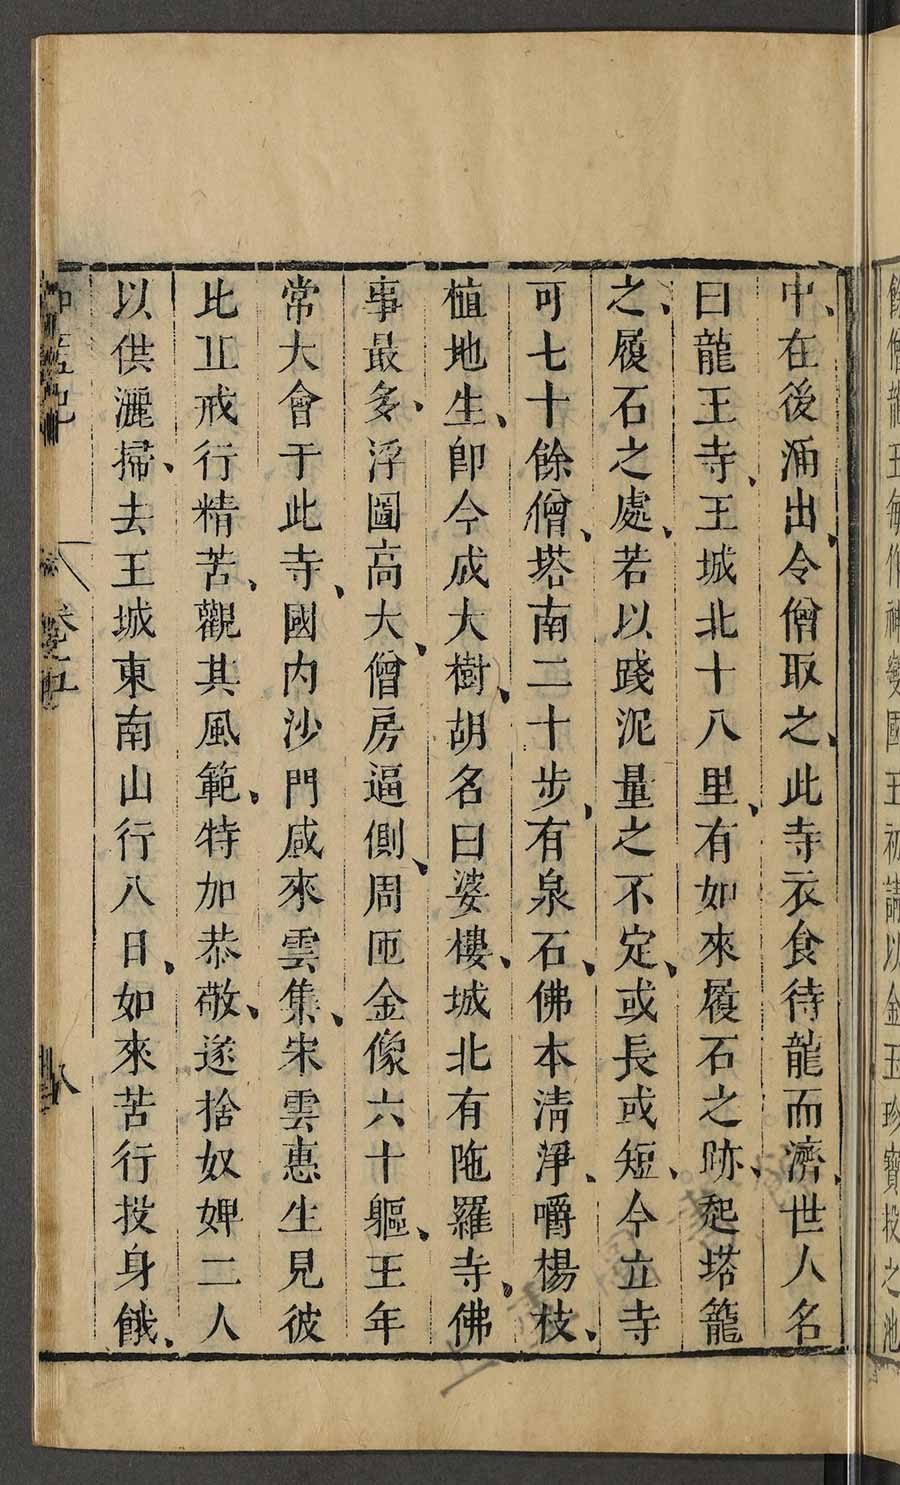 餘僧龍王每作神變國王祈請以金玉珍寶投之池
中在後涌出令僧取之此寺衣食待龍而濟世人名
曰龍王寺王城北十八里有如來履石之跡起塔籠
之履石之處若以踐泥量之不定或長或短今立寺
可七十餘僧塔南二十步有泉石佛本清淨嚼楊枝
植地生即今成大樹胡名曰婆樓城北有陁羅寺佛
事最多浮圖高大僧房逼側周匝金像六十軀王年
常大會于此寺國內沙門咸來雲集宋雲惠生見彼
比丘戒行精苦觀其風範特加恭敬遂捨奴婢二人
以供灑掃去王城東南山行八日如來苦行投身餓
卷五
八